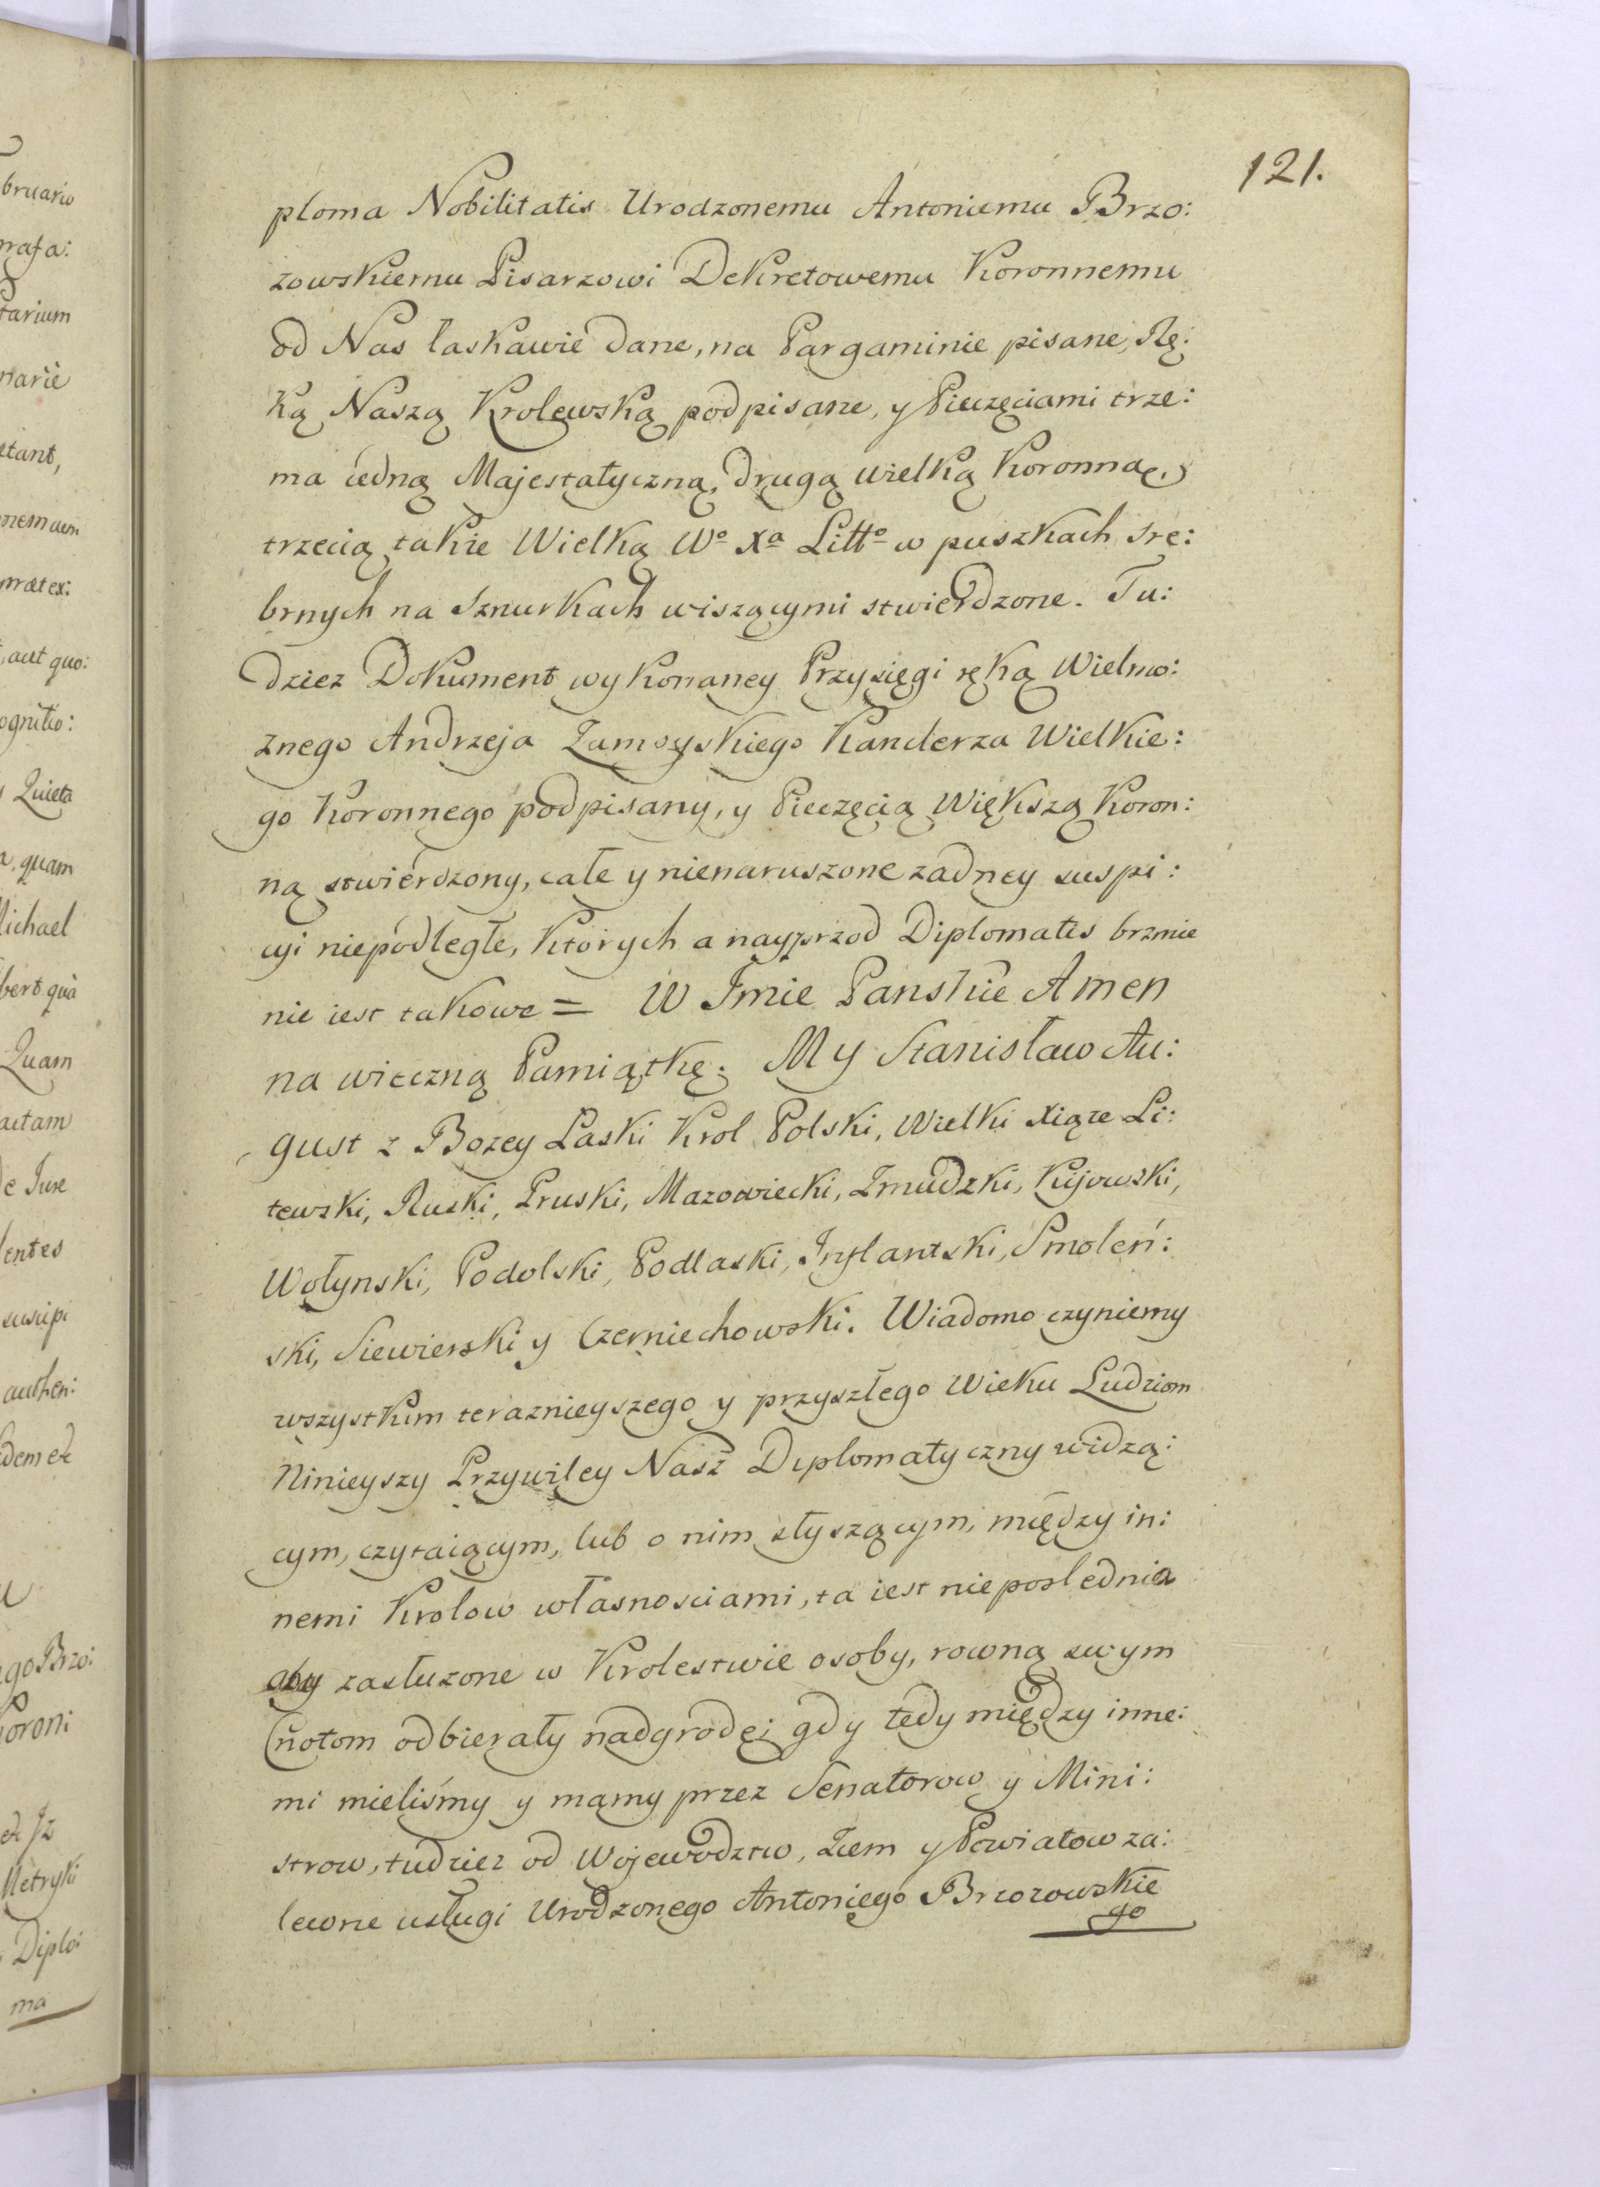 121.
ploma Nobilitatis Urodzonemu Antoniemu Brzo:
zowskiemu Pisarzowi Dekretowemu Koronnemu
od Nas laskawie dane, na Pargaminie pisane, Rę:
ką Naszą Krolewską podpisane, y Pieczęciami trze:
ma iedną Majestatyczną, drugą wielką Koronną,
trzecią także Wielką Wo Xa Litto w puszkach sre:
brnych na Sznurkach wiszącymi stwierdzone. Tu:
dziez Dokument wykonaney Przysięgi ręką Wielmo:
znego Andrzeja Zamoyskiego Kanclerza Wielkie:
go Koronnego podpisany, y Pieczęcią Większą Koron:
ną stwierdzony, całe y nienaruszone zadney suspi:
cyi niepodległe, Ktorych a nayprzod Diplomatis brzmie
nie iest takowe = W Jmie Panskie Amen
na wieczną Pamiątkę. My Stanisław Au:
gust z Bozey Laski Krol Polski, Wielki Xiąze Li:
tewski, Ruski, Pruski, Mazowiecki, Zmudzki, Kijowski,
Wołynski, Podolski, Podlaski, Jnflantski, Smoleń:
ski, Siewierski y Czerniechowski. Wiadomo czyniemy
wszystkim teraznieyszego y przyszłego Wieku Ludziom
Ninieyszy Przywiley Nasz Diplomatyczny widzą:
cym, czytaiącym, lub o nim słyszącym, między in:
nemi Krolow własnosciami, ta iest nieposlednia
aby zasłuzone w Krolestwie osoby, rowną swym
Cnotom odbierały nadgrodę; gdy tedy między inne:
mi mieliśmy y mamy przez Senatorow y Mini:
strow, tudziez od Wojewodztw, Ziem y Powiatow za:
lecone usługi Urodzonego Antoniego Brzozowskie
go
bruario
tarium
narie
aut quo:
quam
Michael
Quam
de Jure
authen:
go Brzo:
Metryki
Diplo:
ma